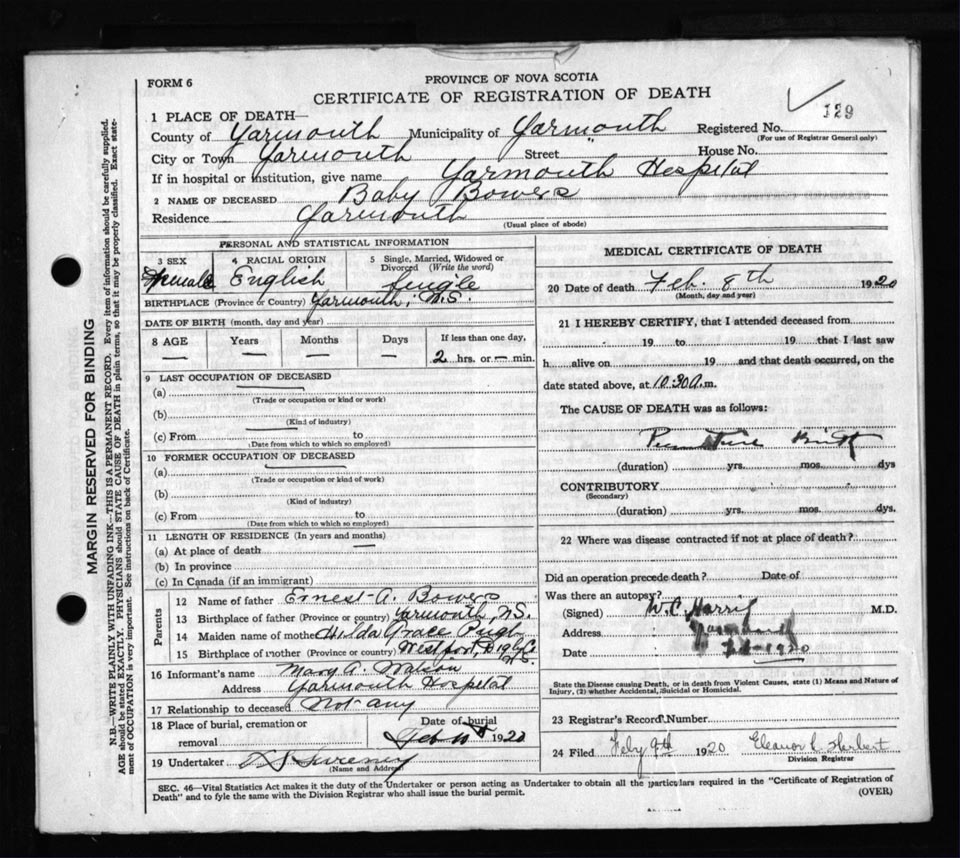 PROVINCE OF NOVA SCOTIA
FORM 6
CERTIFICATE OF REGISTRATION OF DEATH
129
1 PLACE OF DEATH—
County of Yarmouth Municipality of Yarmouth Registered No.
(For use of Registrar General only)
City or Town Yarmouth Street " House No.
If in hospital or institution, give name Yarmouth Hospital
2 NAME OF DECEASED Baby Bowers
Residence Yarmouth
(Usual place of abode)
PERSONAL AND STATISTICAL INFORMATION
3 SEX 4 RACIAL ORIGIN 5 Single, Married, Widowed or Divorced (Write the word)
Female English Single
BIRTHPLACE (Province or Country) Yarmouth, N.S.
DATE OF BIRTH (month, day and year)
8 AGE Years Months Days If less than one day,
— — — — 2 hrs. or — min.
9 LAST OCCUPATION OF DECEASED
(a)
(Trade or occupation or kind or work)
(b)
(Kind of industry)
(c) From to
(Date from which to which so employed)
10 FORMER OCCUPATION OF DECEASED
(a)
(Trade or occupation or kind of work)
(b)
(Kind of industry)
(c) From to
(Date from which to which so employed)
11 LENGTH OF RESIDENCE (In years and months)
(a) At place of death —
(b) In province
(c) In Canada (if an immigrant)
Parents
12 Name of father Ernest A. Bowers
13 Birthplace of father (Province or country) Yarmouth, N.S.
14 Maiden name of mother Hilda Grace Pugh
15 Birthplace of mother (Province or country) Westport, Digby Co N.S.
16 Informant's name Mary A. Watson
Address Yarmouth Hospital
17 Relationship to deceased Not any
18 Place of burial, cremation or removal Date of burial
Feb 10 1920
19 Undertaker Sweeney
(Name and Address)
MEDICAL CERTIFICATE OF DEATH
20 Date of death Feb. 8th 1920
(Month, day and year)
21 I HEREBY CERTIFY, that I attended deceased from
19 to 19 that I last saw
h alive on 19 and that death occurred, on the
date stated above, at 10.30 a.m.
The CAUSE OF DEATH was as follows:
Premature Birth
(duration) yrs. mos. dys
CONTRIBUTORY
(Secondary)
(duration) yrs. mos. dys.
22 Where was disease contracted if not at place of death?
Did an operation precede death? Date of
Was there an autopsy?
(Signed) W.C. Harris M.D.
Address Yarmouth
Date 1920
State the Disease causing Death, or in death from Violent Causes, state (1) Means and Nature of
Injury, (2) whether Accidental, Suicidal or Homicidal.
23 Registrar's Record Number
24 Filed Feby 9th 1920 Eleanor Herbert
Division Registrar
SEC. 46—Vital Statistics Act makes it the duty of the Undertaker or person acting as Undertaker to obtain all the particulars required in the "Certificate of Registration of
Death" and to fyle the same with the Division Registrar who shall issue the burial permit. (OVER)
MARGIN RESERVED FOR BINDING
N.B.—WRITE PLAINLY WITH UNFADING INK—THIS IS A PERMANENT RECORD. Every item of information should be carefully supplied.
AGE should be stated EXACTLY. PHYSICIANS should STATE CAUSE OF DEATH in plain terms, so that it may be properly classified. Exact state-
ment of OCCUPATION is very important. See instructions on back of Certificate.